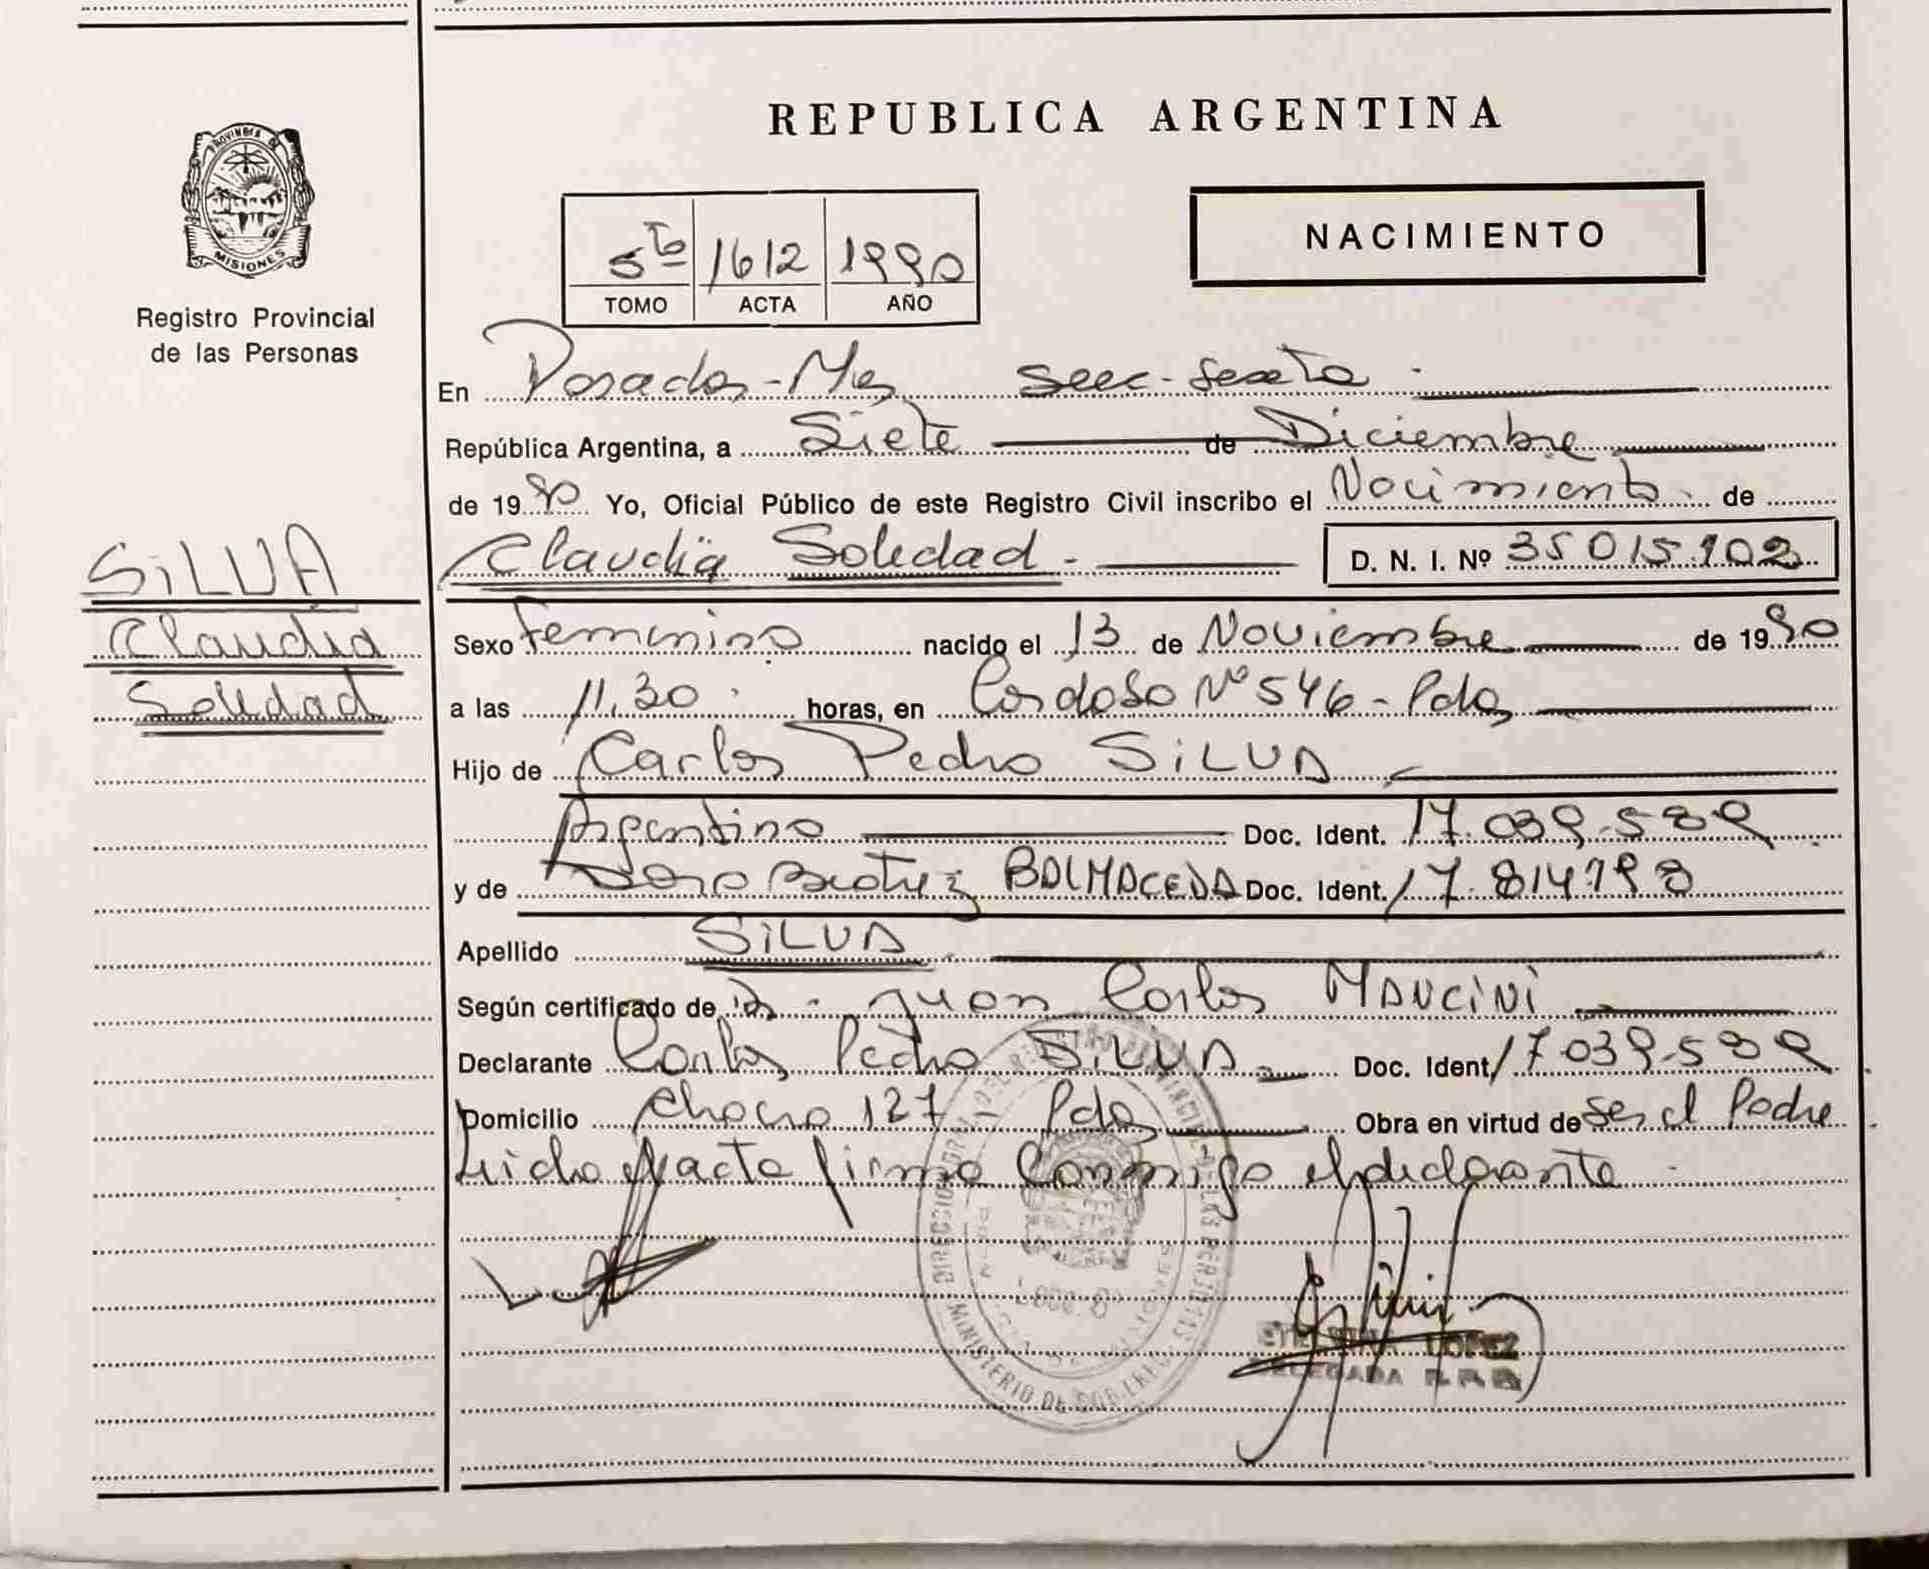 REPUBLICA ARGENTINA
PROVINCIA DE
MISIONES
Registro Provincial
de las Personas
NACIMIENTO
5to 1612 1990
TOMO ACTA AÑO
En Posadas - Mnes secc - sexta
República Argentina, a Siete de Diciembre
de 1990 Yo, Oficial Público de este Registro Civil inscribo el Nacimiento de
Claudia Soledad - D. N. I. Nº 35 015.102
SILVA
Claudia
Soledad
Sexo femenino nacido el 13 de Noviembre de 1990
a las 11,30 horas, en Cardoso Nº 546 - Pdas
Hijo de Carlos Pedro SiLVA
Argentino Doc. Ident. 17.039.589
y de Beatriz BALMACEDA Doc. Ident. 17.814.198
Apellido SiLVA
Según certificado de Juan Carlos MANCiNi
Declarante Carlos Pedro SiLVA Doc. Ident 17 039.589
Domicilio Chaco 127 Pdas Obra en virtud de ser el Padre
Leida el acta firma conmigo el declarante
LOPEZ
DELEGADA